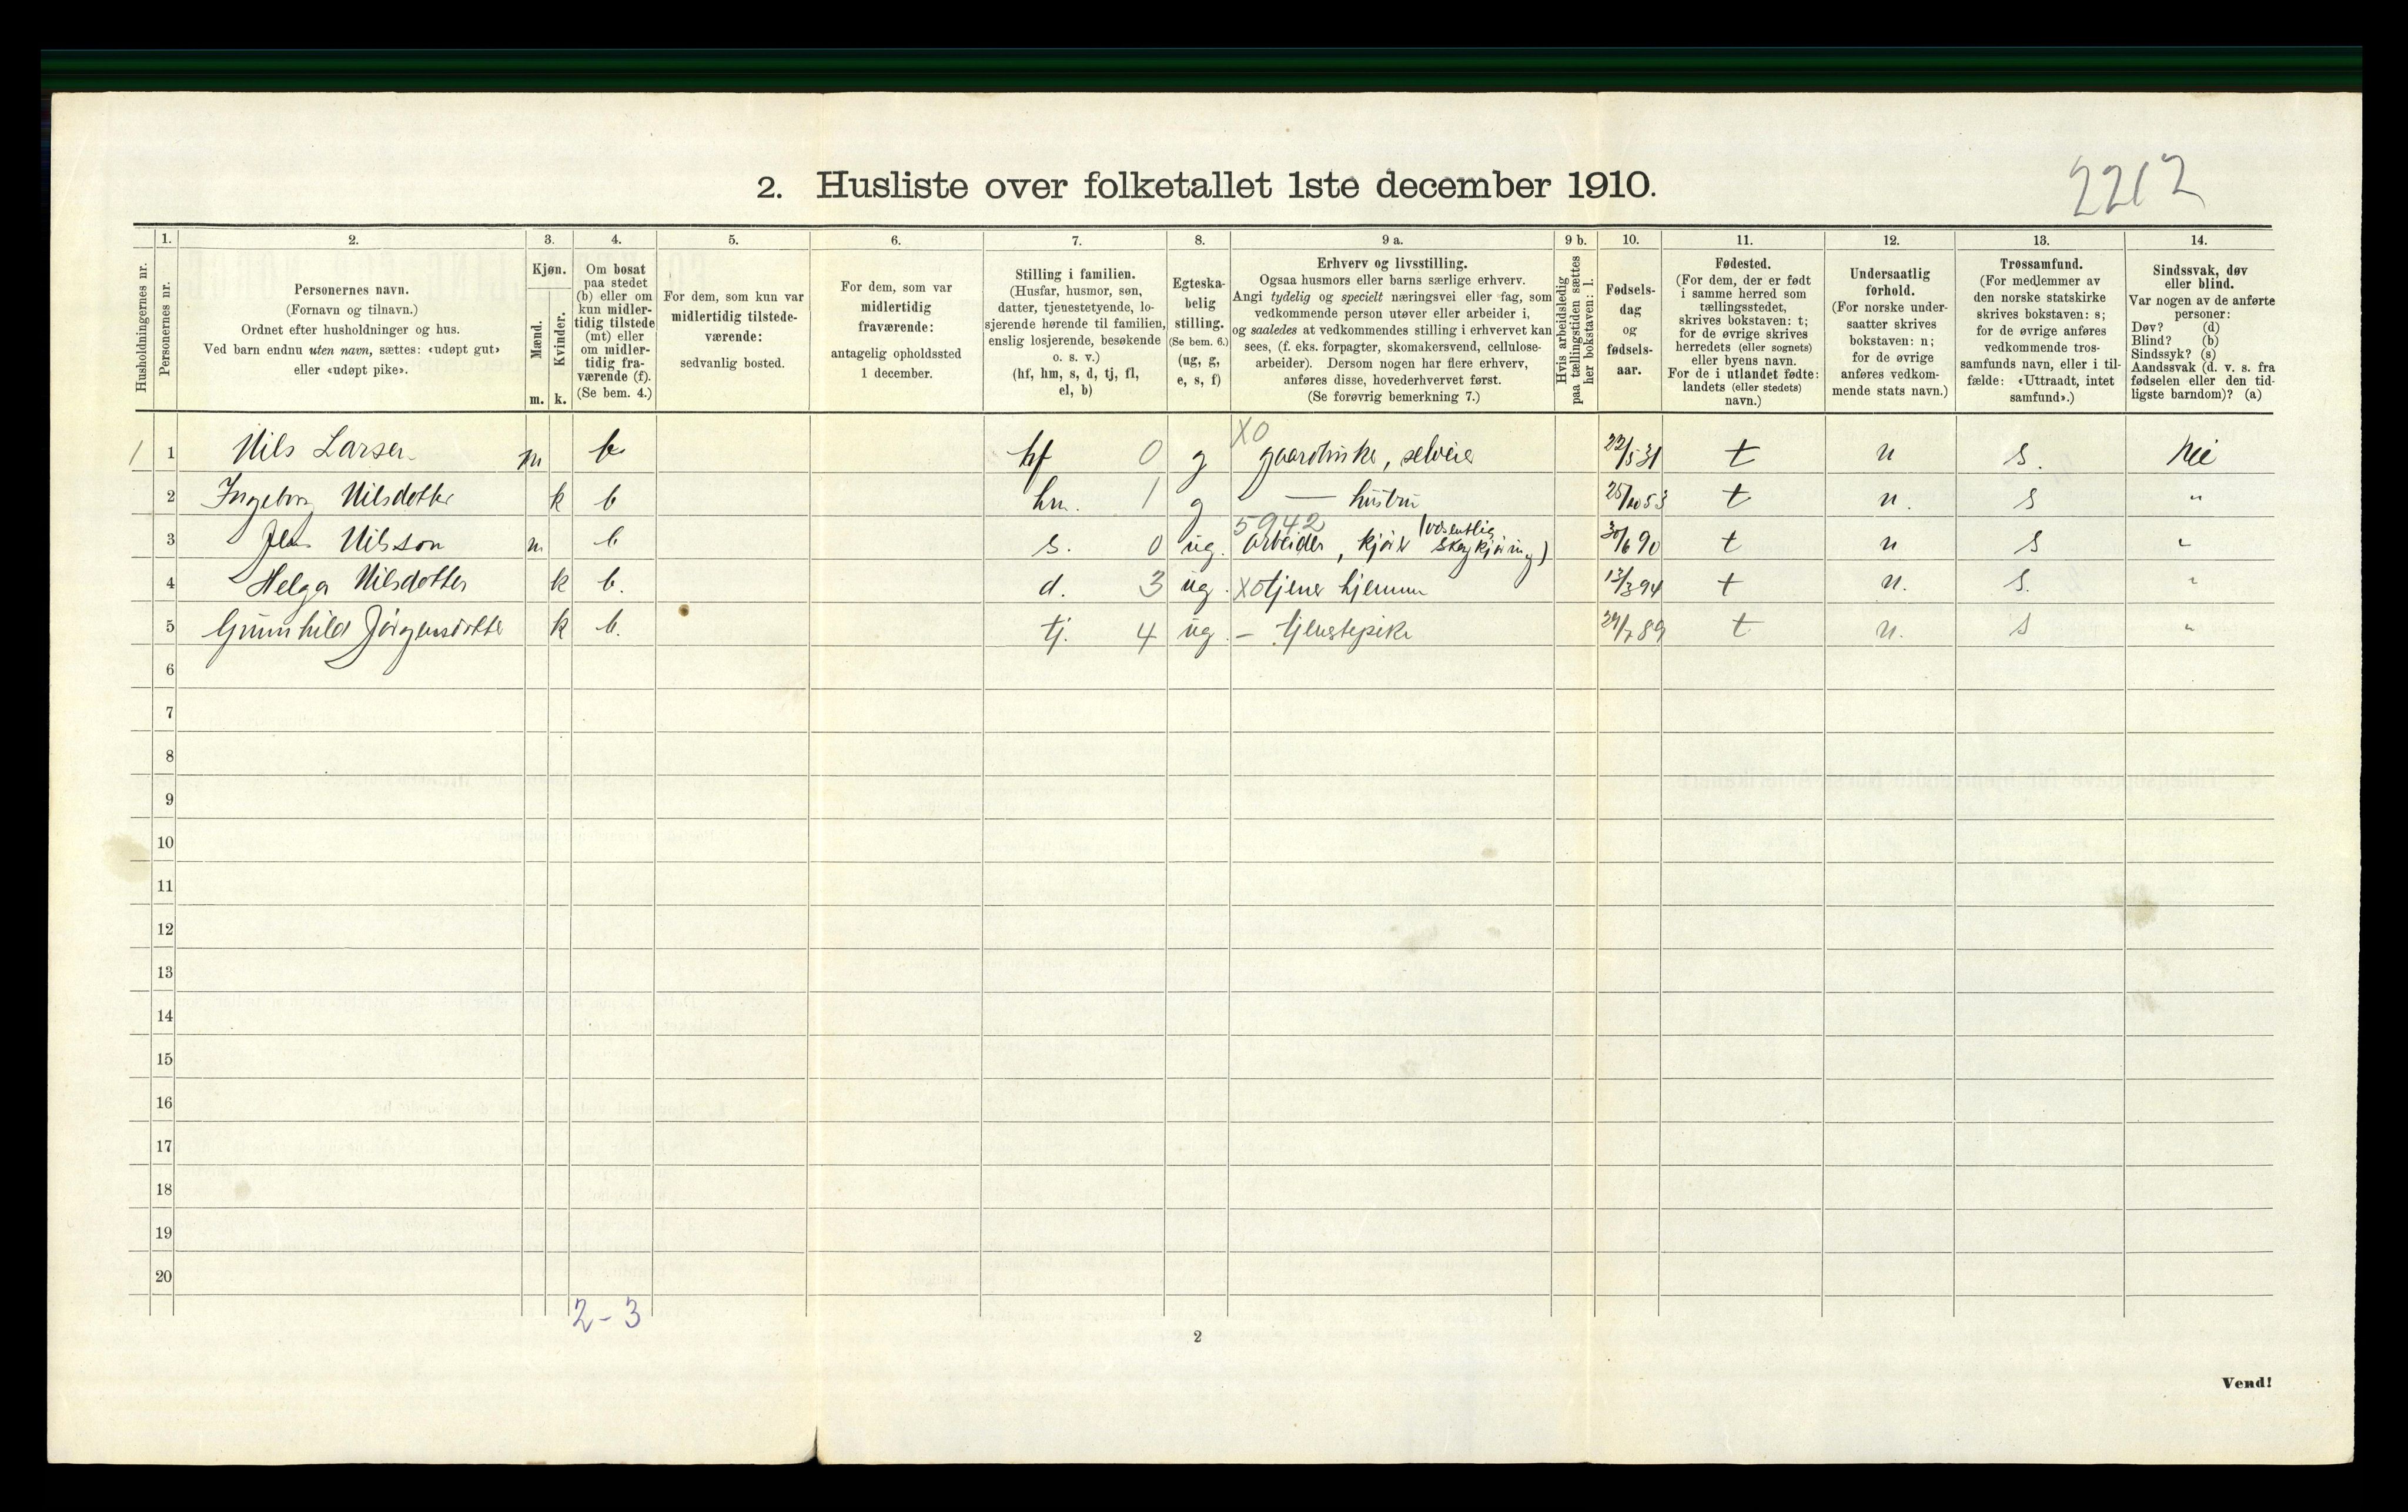 2. Husliste over folketallet 1ste december 1910.
2212
Husholdningernes nr.
1.
Personernes nr.
2.
Personernes navn.
(Fornavn og tilnavn.)
Ordnet efter husholdninger og hus.
Ved barn endnu uten navn, sættes: «udøpt gut»
eller «udøpt pike».
3.
Kjøn.
Mænd.
Kvinder.
m. k.
4.
Om bosat
paa stedet
(b) eller om
kun midler-
tidig tilstede
(mt) eller
om midler-
tidig fra-
værende (f).
(Se bem. 4.)
5.
For dem, som kun var
midlertidig tilstede-
værende:
sedvanlig bosted.
6.
For dem, som var
midlertidig
fraværende:
antagelig opholdssted
1 december.
7.
Stilling i familien.
(Husfar, husmor, søn,
datter, tjenestetyende, lo-
sjerende hørende til familien,
enslig losjerende, besøkende
o. s. v.)
(hf, hm, s, d, tj, fl,
el, b)
8.
Egteska-
belig
stilling.
(Se bem. 6.)
(ug, g,
e, s, f)
9 a.
Erhverv og livsstilling.
Ogsaa husmors eller barns særlige erhverv.
Angi tydelig og specielt næringsvei eller fag, som
vedkommende person utøver eller arbeider i,
og saaledes at vedkommendes stilling i erhvervet kan
sees, (f. eks. forpagter, skomakersvend, cellulose-
arbeider). Dersom nogen har flere erhverv,
anføres disse, hovederhvervet først.
(Se forøvrig bemerkning 7.)
9 b.
Hvis arbeidsledig
paa tællingstiden sættes
her bokstaven: l.
10.
Fødsels-
dag
og
fødsels-
aar.
11.
Fødested.
(For dem, der er født
i samme herred som
tællingsstedet,
skrives bokstaven: t;
for de øvrige skrives
herredets (eller sognets)
eller byens navn.
For de i utlandet fødte:
landets (eller stedets)
navn.)
12.
Undersaatlig
forhold.
(For norske under-
saatter skrives
bokstaven: n;
for de øvrige
anføres vedkom-
mende stats navn.)
13.
Trossamfund.
(For medlemmer av
den norske statskirke
skrives bokstaven: s;
for de øvrige anføres
vedkommende tros-
samfunds navn, eller i til-
fælde: «Uttraadt, intet
samfund».)
14.
Sindssvak, døv
eller blind.
Var nogen av de anførte
personer:
Døv? (d)
Blind? (b)
Sindssyk? (s)
Aandssvak (d. v. s. fra
fødselen eller den tid-
ligste barndom)? (a)
X0
1 1 Nils Larsen m b hf 0 g gaardbruker, selveier 22/5 31 t n s. Nei
2 Ingeborg Nilsdotter k b hm. 1 g — hustru 25/10 53 t n. s "
5942 (væsentlig
3 Nilsson m b s. 0 ug. arbeider, kjører skogkjøring) 30/6 90 t n s "
4 Helga Nilsdotter k b. d. 3 ug. X0 tjener hjemme 13/3 94 t n. s. "
5 Gunnhild Jörgensdotter k b. tj. 4 ug. – tjenstepike 29/7 89 t n. s "
6
7
8
9
10
11
12
13
14
15
16
17
18
19
20
2-3
2
Vend!